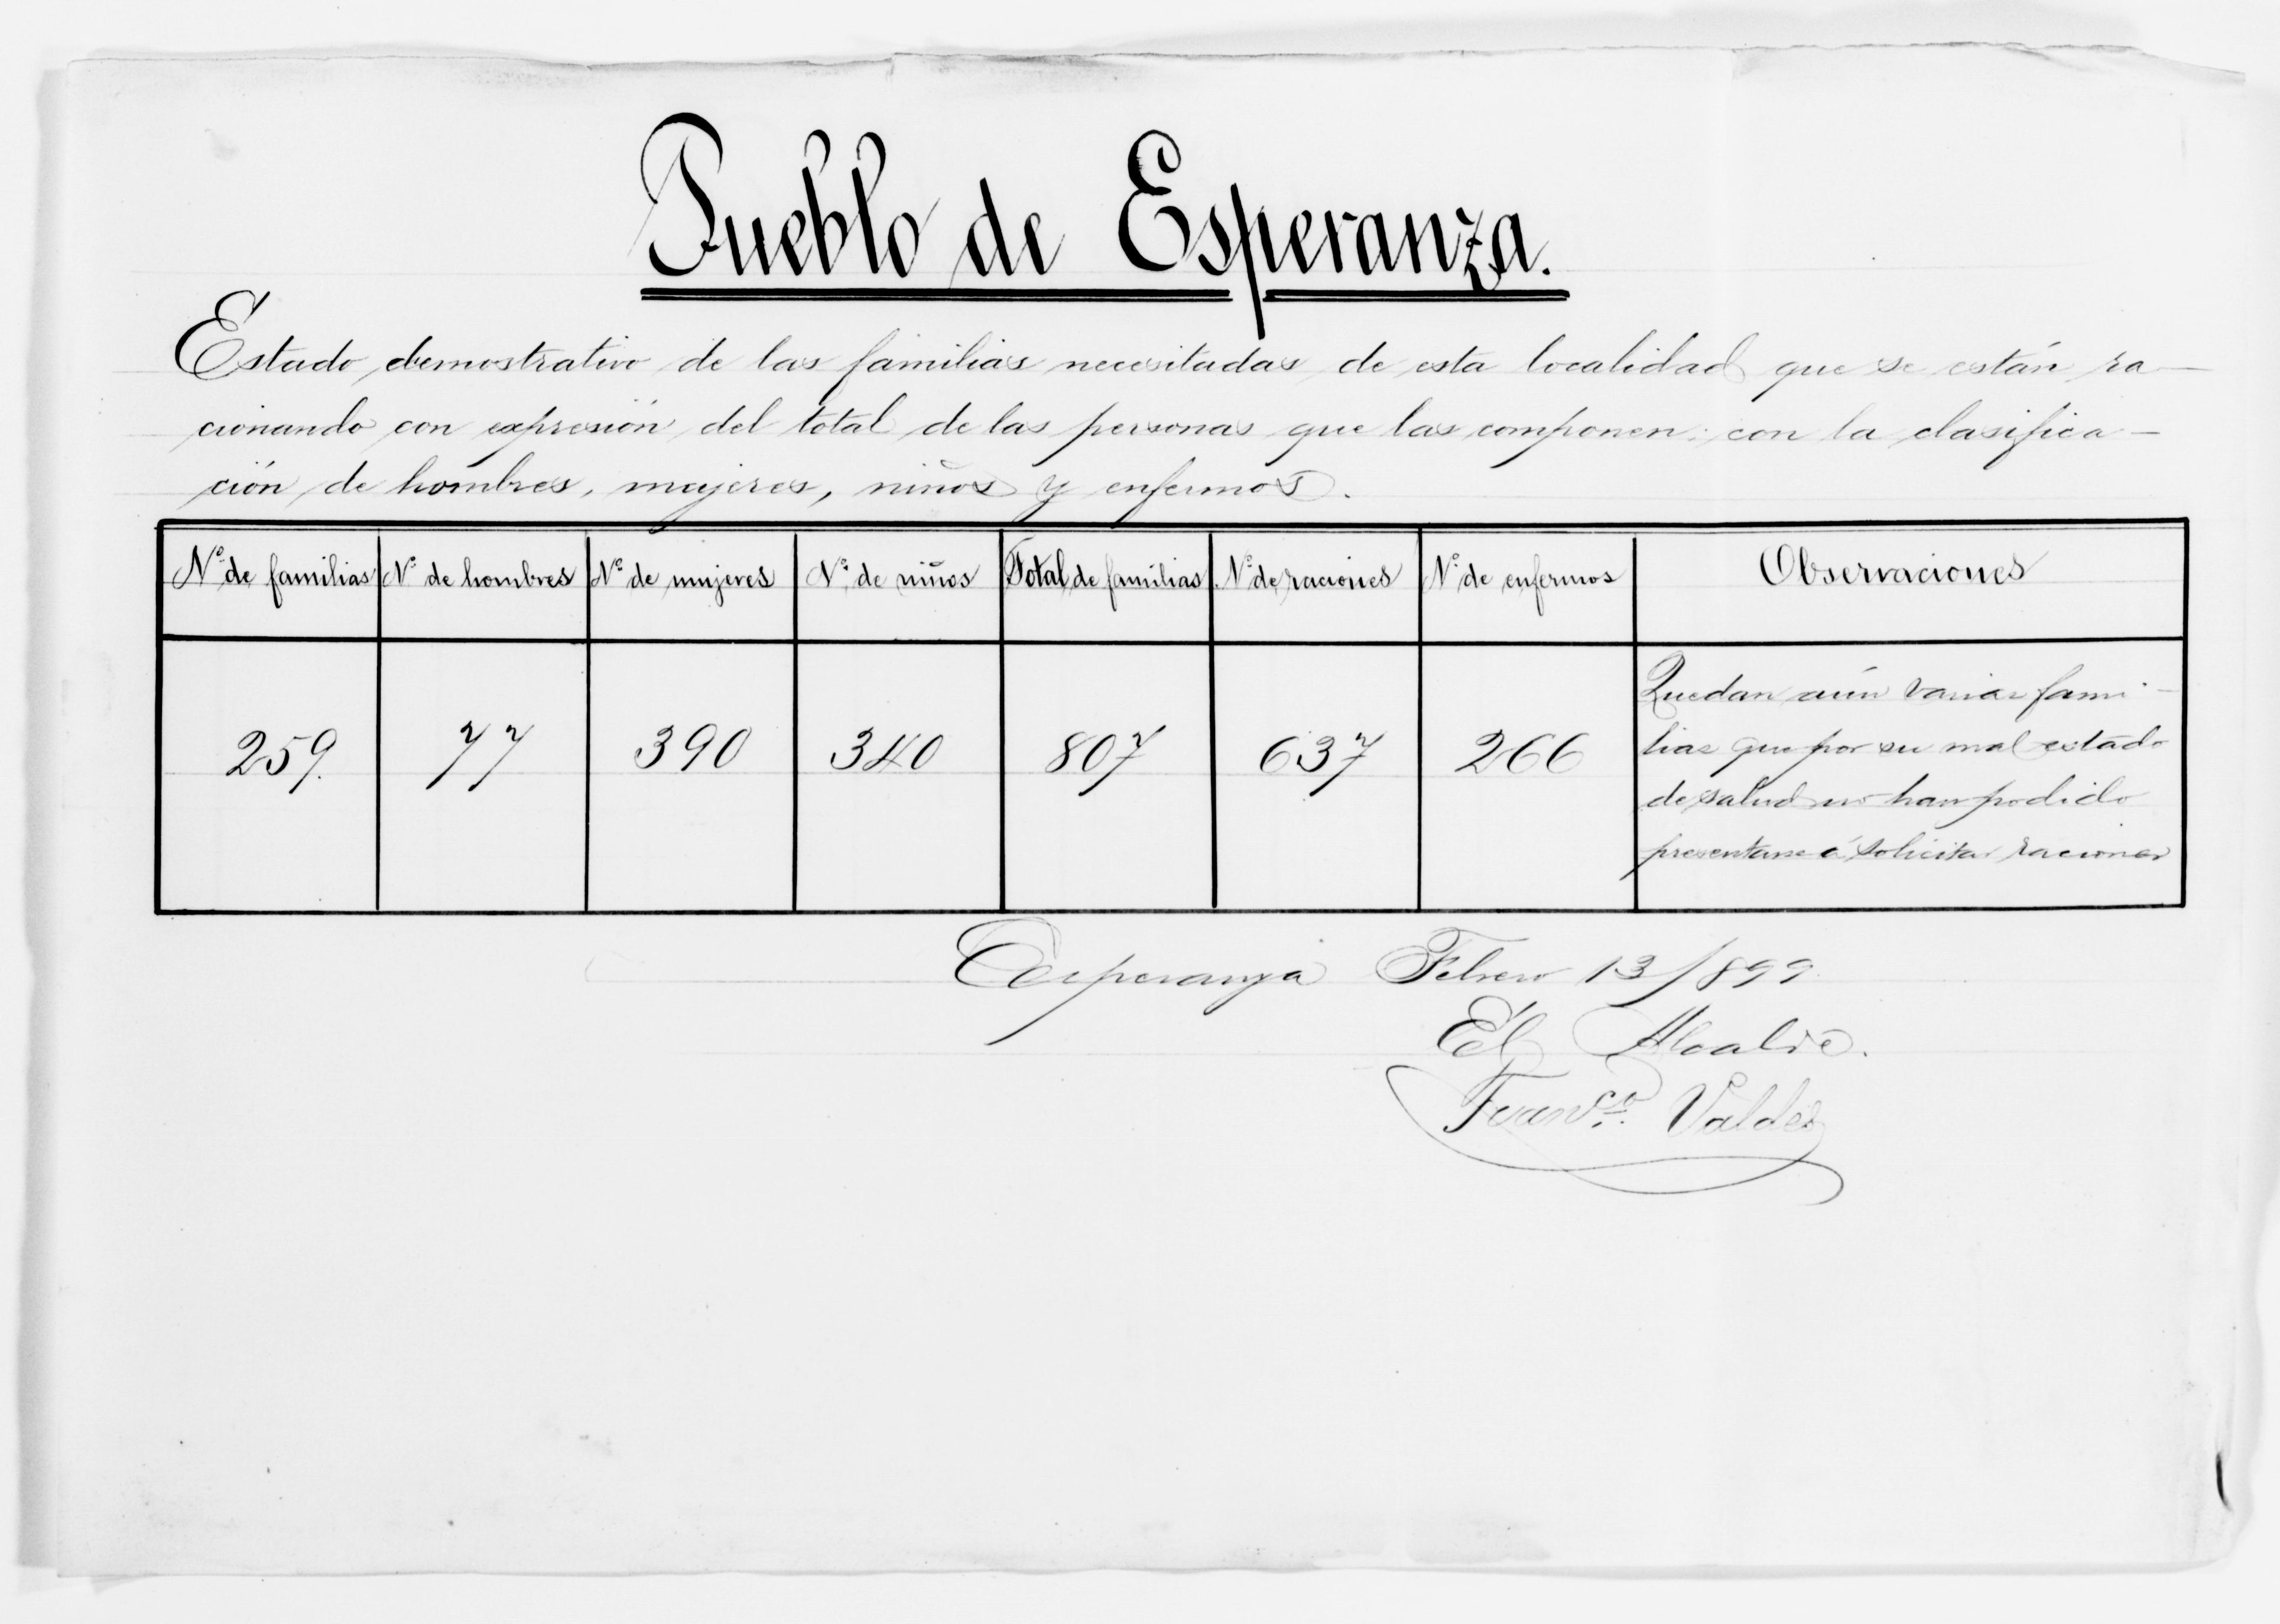 Pueblo de Esperanza.
Estado demostrativo de las familias necesitadas de esta localidad que se están ra-
cionando con expresión del total de las personas que las componen; con la clasifica-
ción de hombres, mujeres, niños y enfermos.
Nº de familias Nº de hombres Nº de mujeres Nº de niños Total de familias Nº de raciones Nº de enfermos Observaciones
259. 77 390 340 807 637 266
Quedan aún varias fami-
lias que por su mal estado
de salud no han podido
presentarse á solicitar raciones
Esperanza Febrero 13/899.
El Alcalde.
Franco. Valdes